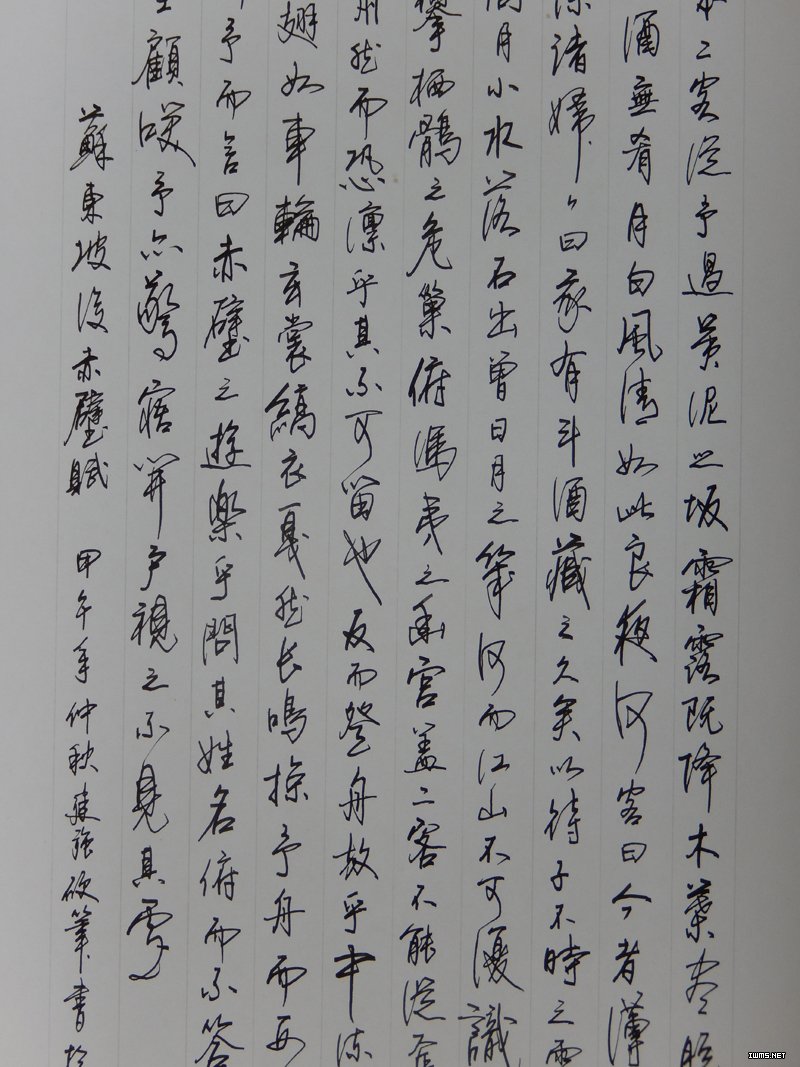 二客從予過黃泥之坂霜露既降木葉盡脫
酒無肴月白風清如此良夜何客曰今者薄
諸婦〻曰我有斗酒藏之久矣以待子不時之需
月小水落石出曾日月之幾何而江山不可復識
攀栖鶻之危巢俯馮夷之幽宮蓋二客不能從焉
然而恐凛乎其不可留也反而登舟放乎中流
翅如車輪玄裳縞衣戛然长鳴掠予舟而西
予而言曰赤壁之遊樂乎問其姓名俯而不答
顧笑予亦驚寤開戶視之不見其處
蘇東坡後赤壁賦 甲午年仲秋建強硬筆書於
IWMS.NET